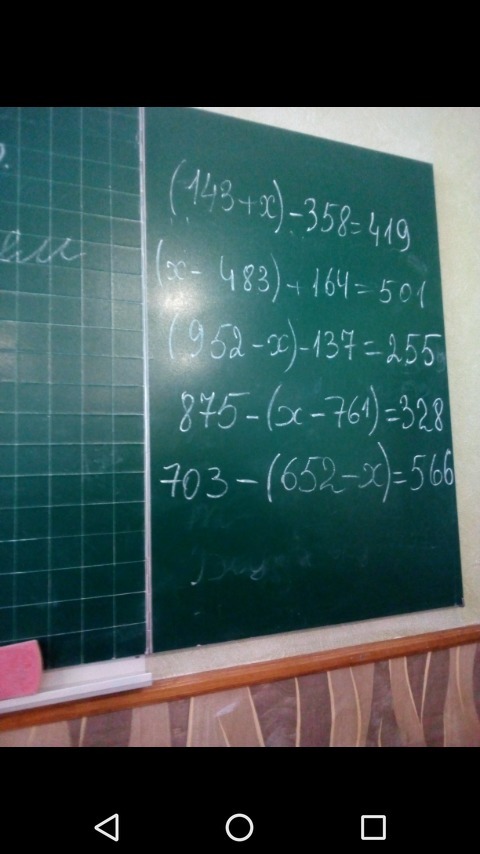 (143+x)-358=419
(x-483)+164=501
(952-x)-137=255
875-(x-761)=328
703-(652-x)=566